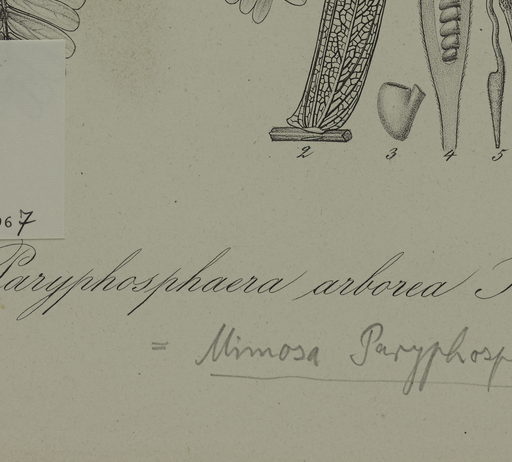 2 3 4 5
67
Paryphosphaera arborea
= Mimosa Paryphosp